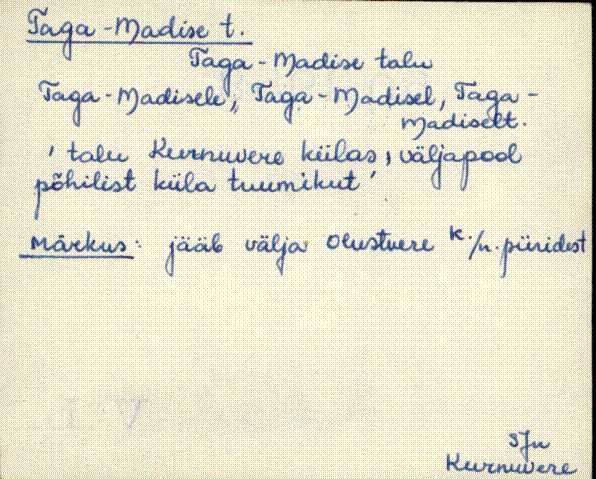 Taga-Madise t.
Taga-Madise talu
Taga-Madisele, Taga-Madisel, Taga-
Madiselt.
'talu Kurnuvere külas, väljapool
põhilist küla tuumikut'
Märkus: jääb välja Olustvere k./n. piiridest
SJn
Kurnuvere